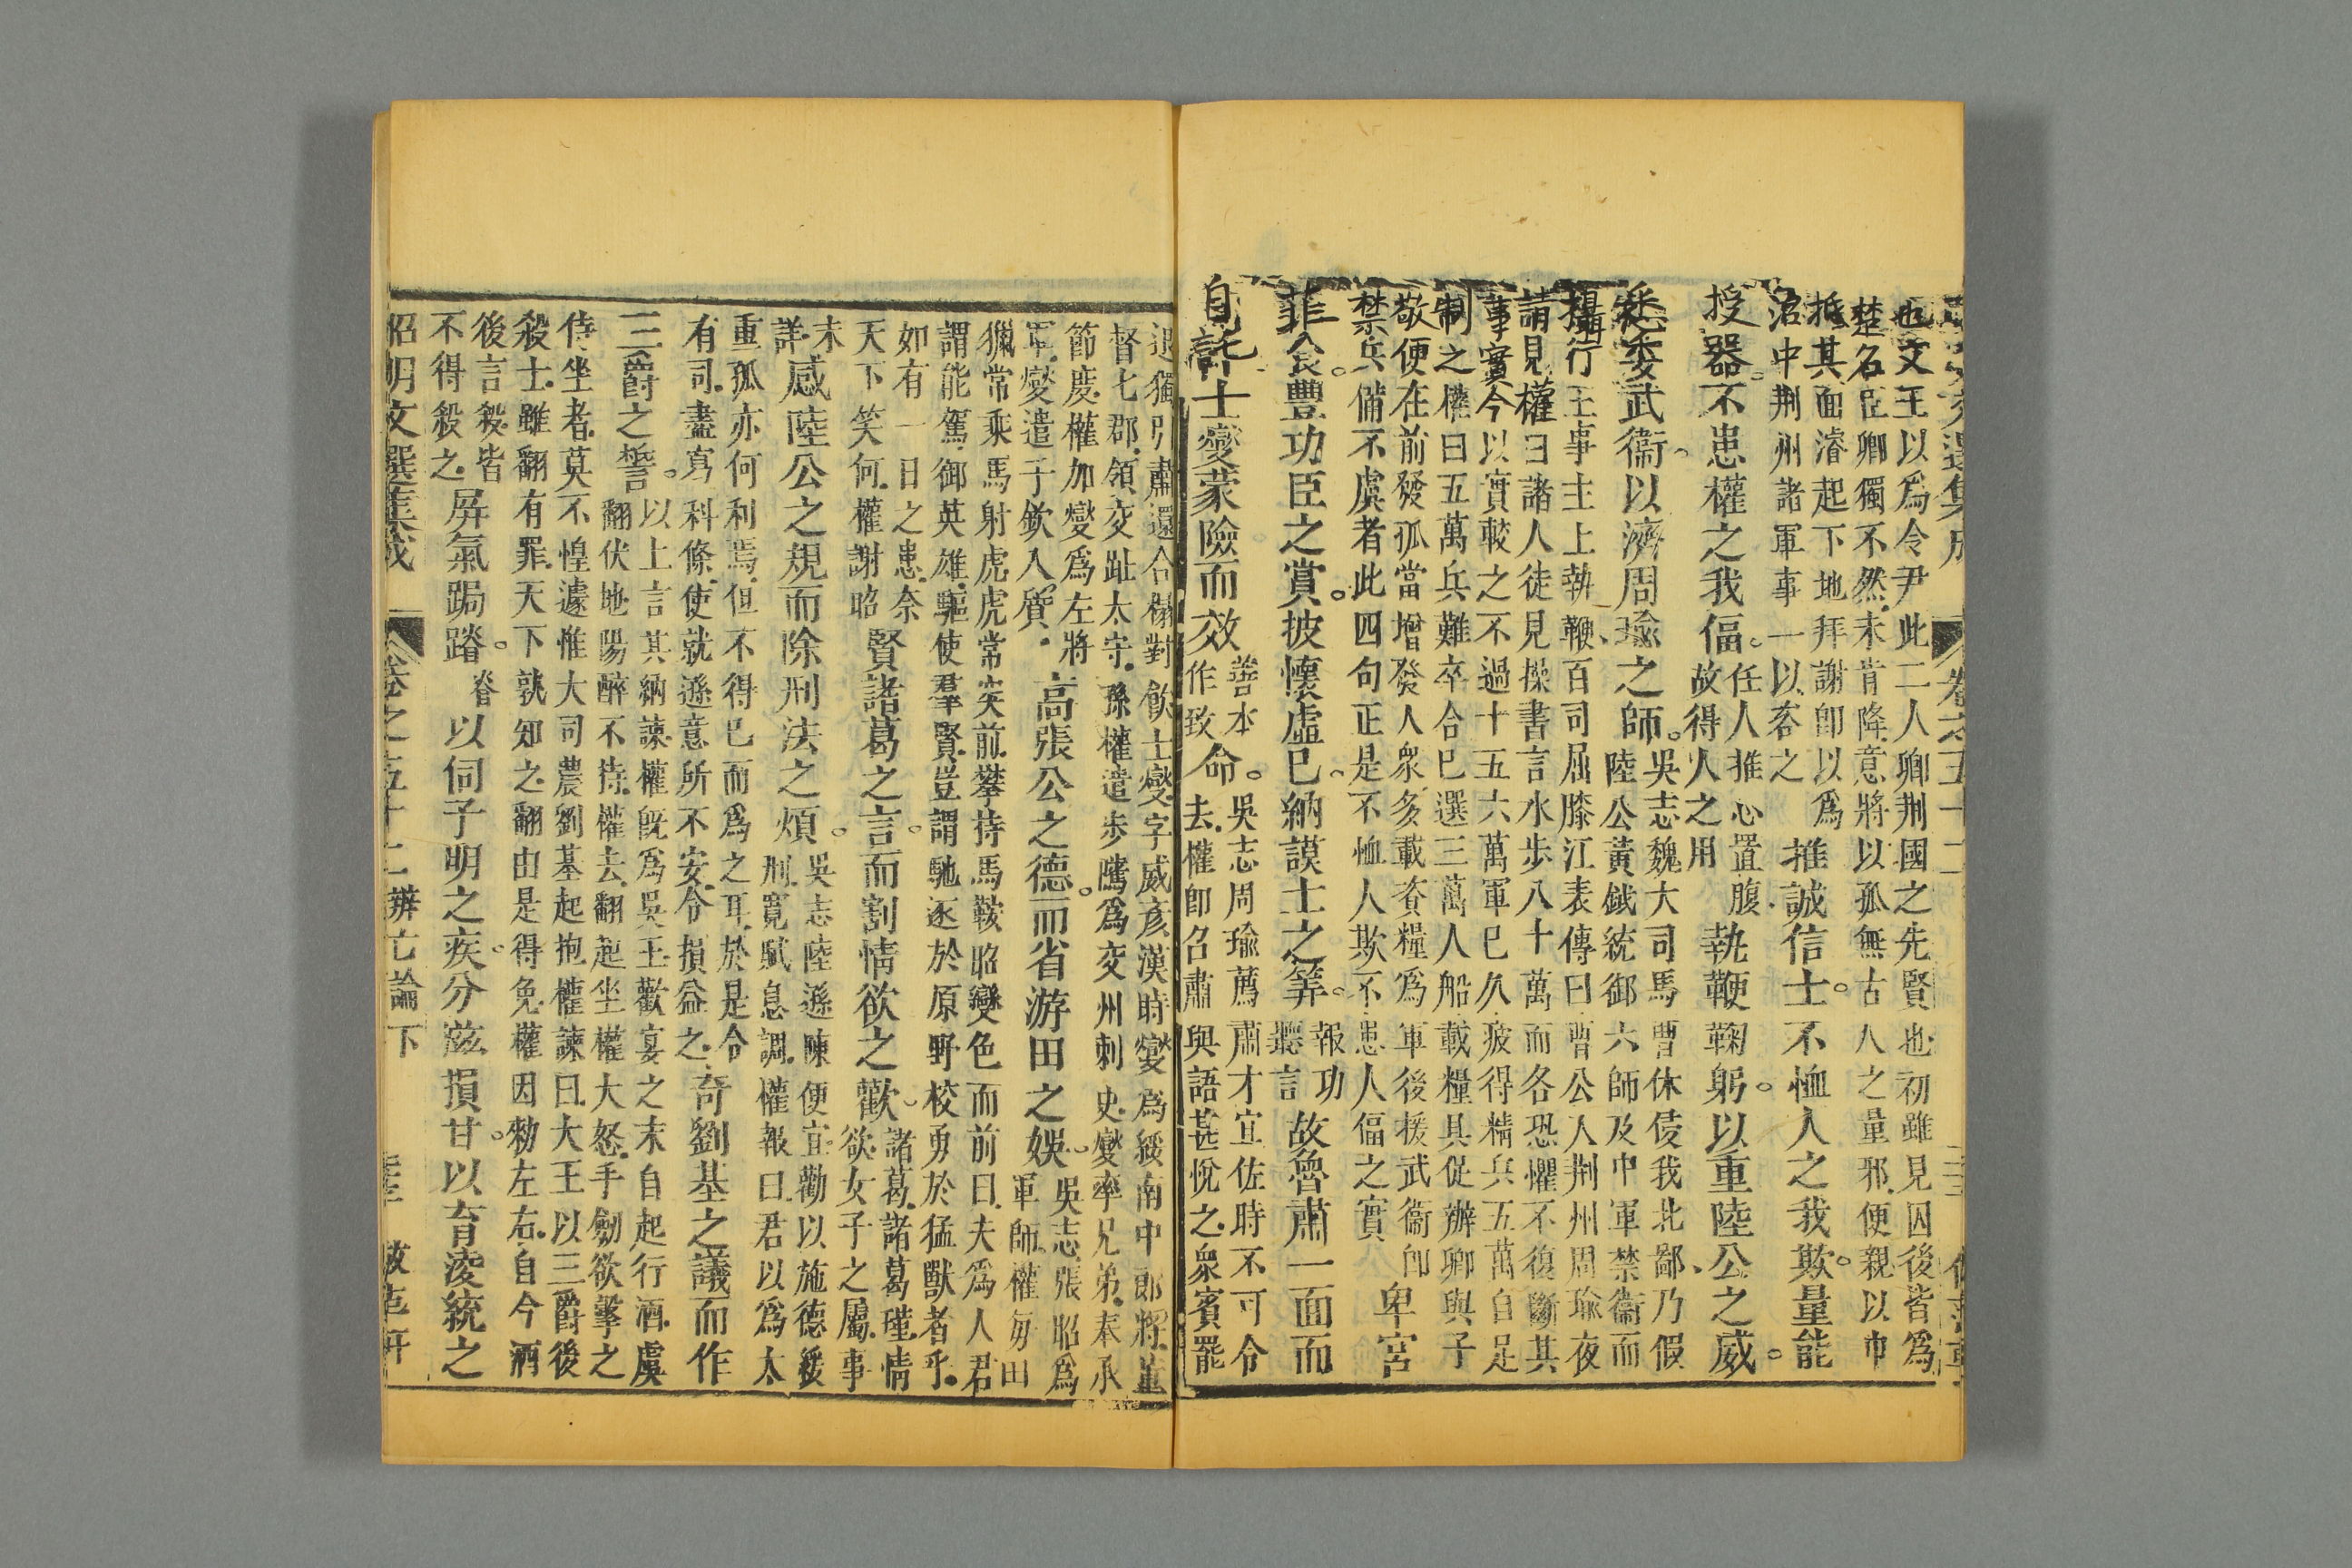 也文王以為令尹此二人卿荆國之先賢也初雖見囚後皆為
楚名臣卿獨不然未肯降意將以孤無古人之量邪便親以巾
拭其面濬起下地拜謝即以為
沼中荆州諸軍事一以咨之
推誠信士。不恤人之我欺。量能
授器。不患權之我偪。
任人推心置腹
故得人之用
執鞭鞠躬。以重陸公之威。
悉委武衞。以濟周瑜之師。
吳志魏大司馬曹休侵我北鄙乃假
陸公黃鉞統御六師及中軍禁衞而
攝行王事主上執鞭百司屈膝江表傳曰曹公入荆州周瑜夜
請見權曰諸人徒見操書言水步八十萬而各恐懼不復斷其
事實今以實較之不過十五六萬軍巳久疲得精兵五萬自足
制之權曰五萬兵難卒合巳選三萬人船載糧具促辦卿與子
敬便在前發孤當增發人衆多載資糧為軍後援武衞卽
禁兵備不虞者此四句正是不恤人欺不患人偪之實
卑宮
菲食。豐功臣之賞。披懷虛巳。納謨士之筭。
報功
聽言
故魯肅一面而
自託士燮蒙險而效
善本
作致
命。
吳志周瑜薦肅才宜佐時不可令
去權卽召肅與語甚悅之衆賓罷
退獨引肅還合榻對飲士燮字威彥漢時燮為綏南中郎將董
督七郡領交趾太守孫權遣步隲為交州刺史燮率兄弟奉承
節度權加燮為左將
軍燮遣子欽入質
高張公之德。而省游田之娛。
吳志張昭為
軍師權每田
獵常乘馬射虎虎常突前攀持馬鞍昭變色而前曰夫為人君
謂能駕御英雄驅使羣賢豈謂馳逐於原野校勇於猛獸者乎
如有一日之患奈
天下笑何權謝昭
賢諸葛之言。而割情欲之歡。
諸葛諸葛瑾情
欲女子之屬事
未
詳
感陸公之規而除刑法之煩。
吳志陸遜陳便宜勸以施德緩
刑寬賦息調權報曰君以為太
重孤亦何利焉但不得巳而為之耳於是令
有司盡寫科條使就遜意所不安令損益之
奇劉基之議而作
三爵之誓。
以上言其納諫權旣為吳王歡宴之末自起行酒虞
翻伏地陽醉不持權去翻起坐權大怒手劒欲擊之
侍坐者莫不惶遽惟大司農劉基起抱權諫曰大王以三爵後
殺士雖翻有罪天下孰知之翻由是得免權因勑左右自今酒
後言殺皆
不得殺之
屏氣跼蹐。
脊
以伺子明之疾。分滋損甘。以育淩統之
昭明文選集成
卷之五十二 辨亡論下